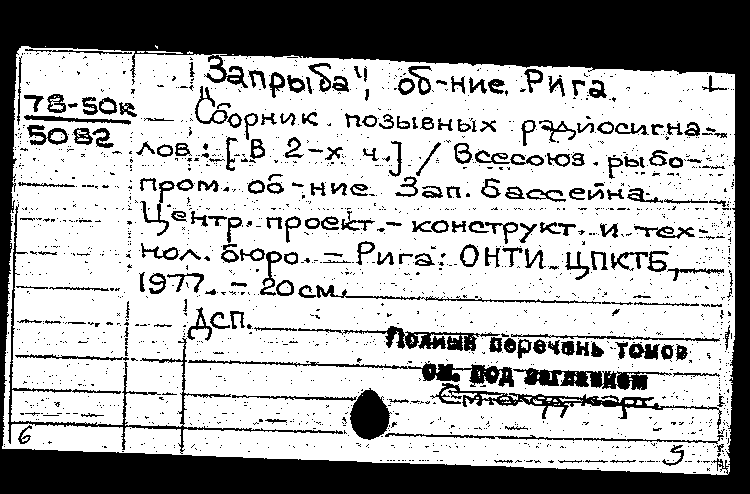 "Запрыба", об-ние. Рига.
78-50к
5082
Сборник позывных радиосигна-
лов: [В 2-х ч.] / Всесоюз. рыбо-
пром. об-ние Зап. бассейна.
Центр. проект.-конструкт. и тех-
нол. бюро. – Рига: ОНТИ ЦПКТБ,
1977. – 20см.
ДСП.
Полный перечень томов
см. под заглавием
6
5